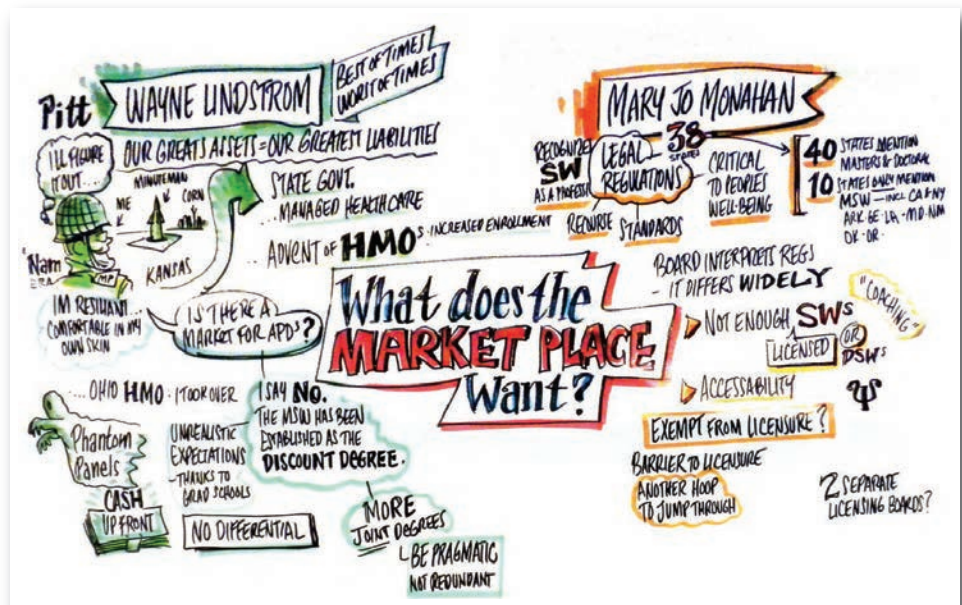 Pitt
WAYNE LINDSTROM
BEST OF TIMES
WORST OF TIMES
OUR GREATS ASSETS = OUR GREATEST LIABILITIES
I'LL FIGURE
IT OUT...
MINUTEMAN
ME
CORN
KANSAS
'Nam
ERA
MP
STATE GOVT.
...MANAGED HEALTH CARE
ADVENT OF HMO'S · INCREASED ENROLLMENT
I'M RESILIANT...
COMFORTABLE IN MY
OWN SKIN
IS THERE A
MARKET FOR APD'S?
...OHIO HMO · I TOOK OVER
Phantom
Panels
CASH
UP FRONT
UNREALISTIC
EXPECTATIONS
- THANKS TO
GRAD SCHOOLS
I SAY NO.
THE MSW HAS BEEN
ESTABLISHED AS THE
DISCOUNT DEGREE.
NO DIFFERENTIAL
MORE
JOINT DEGREES
BE PRAGMATIC
NOT REDUNDANT
What does the
MARKET PLACE
Want?
MARY JO MONAHAN
RECOGNIZE
SW
AS A PROFESSION
LEGAL
REGULATIONS
38
STATES
CRITICAL
TO PEOPLES
WELL-BEING
RECOURSE
STANDARDS
40 STATES MENTION
MASTERS & DOCTORAL
10 STATES ONLY MENTION
MSW - INCL CA & NY
ARK · LA · MD · NM
OK · OR ·
BOARD INTERPRETS REGS
- IT DIFFERS WIDELY
"COACHING"
NOT ENOUGH SWs
LICENSED
OR
DSWs
ACCESSABILITY
EXEMPT FROM LICENSURE?
BARRIER TO LICENSURE
ANOTHER HOOP
TO JUMP THROUGH
2 SEPARATE
LICENSING BOARDS?